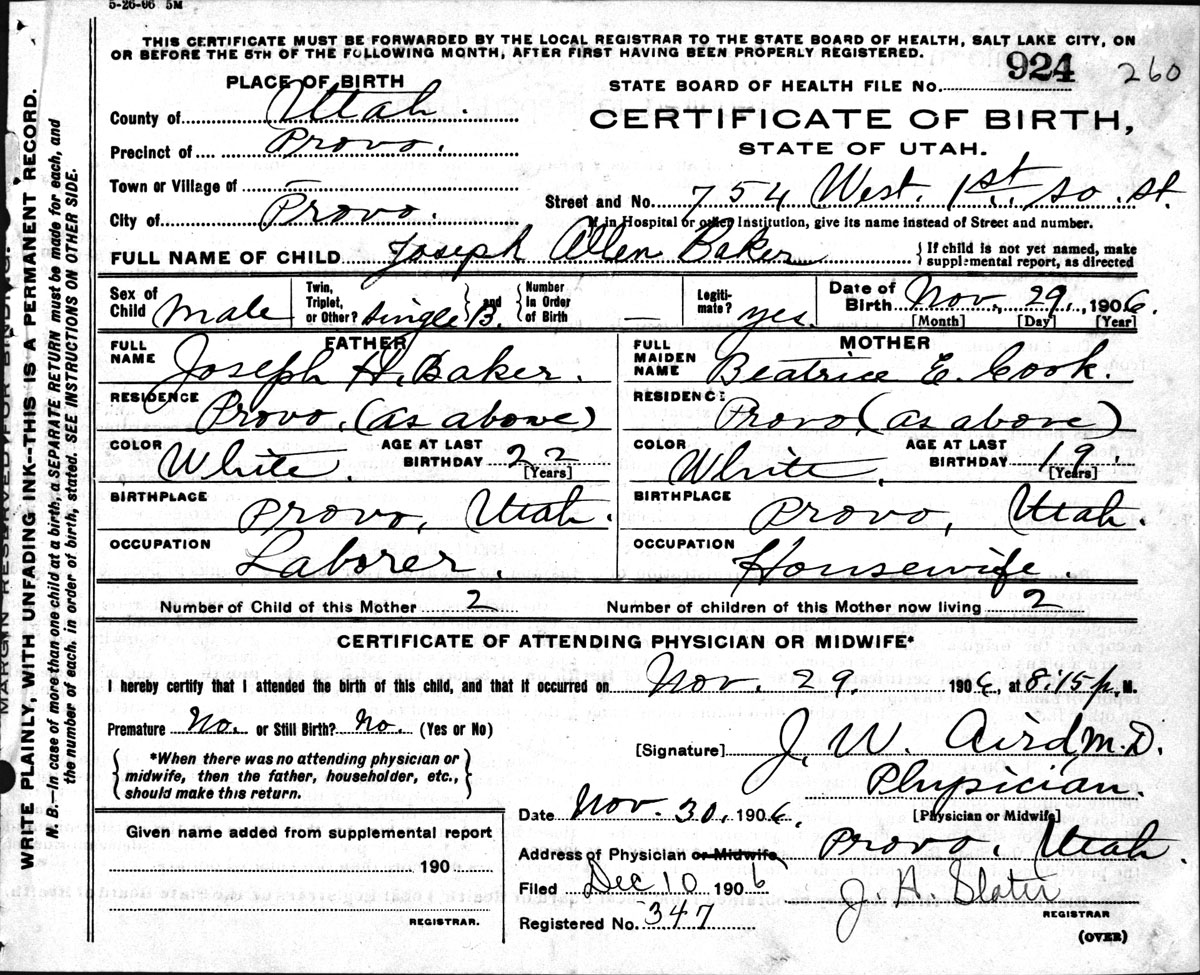 5-26-06 5M
THIS CERTIFICATE MUST BE FORWARDED BY THE LOCAL REGISTRAR TO THE STATE BOARD OF HEALTH, SALT LAKE CITY, ON
OR BEFORE THE 5TH OF THE FOLLOWING MONTH, AFTER FIRST HAVING BEEN PROPERLY REGISTERED.
PLACE OF BIRTH
STATE BOARD OF HEALTH FILE No. 924 260
County of Utah.
CERTIFICATE OF BIRTH,
Precinct of Provo.
STATE OF UTAH.
Town or Village of —
Street and No. 754 West. 1st. so. st.
City of Provo.
If in Hospital or other Institution, give its name instead of Street and number.
FULL NAME OF CHILD Joseph Allen Baker
{If child is not yet named, make
supplemental report, as directed
Sex of Child Male
Twin, Triplet, or Other? single B. and Number in Order of Birth —
Legiti-mate? yes.
Date of Birth Nov. 29., 1906.
[Month] [Day] [Year]
FATHER
FULL NAME Joseph H. Baker.
MOTHER
FULL MAIDEN NAME Beatrice E. Cook.
RESIDENCE Provo. (as above)
RESIDENCE Provo (as above)
COLOR White. AGE AT LAST BIRTHDAY 22 [Years]
COLOR White, AGE AT LAST BIRTHDAY 19. [Years]
BIRTHPLACE Provo, Utah.
BIRTHPLACE Provo, Utah.
OCCUPATION Laborer.
OCCUPATION Housewife.
Number of Child of this Mother 2
Number of children of this Mother now living 2
CERTIFICATE OF ATTENDING PHYSICIAN OR MIDWIFE*
I hereby certify that I attended the birth of this child, and that it occurred on Nov. 29. 1906, at 8.15 p. M.
Premature No. or Still Birth? No. (Yes or No)
*When there was no attending physician or
midwife, then the father, householder, etc.,
should make this return.
[Signature] J. W. Aird M.D.
Physician.
[Physician or Midwife]
Date Nov. 30, 1906.
Given name added from supplemental report
190
REGISTRAR.
Address of Physician or Midwife Provo, Utah.
Filed Dec 10 1906
J. A. Slater
REGISTRAR
Registered No. 347
(OVER)
MARGIN RESERVED FOR BINDING.
WRITE PLAINLY, WITH UNFADING INK--THIS IS A PERMANENT RECORD.
N. B.—In case of more than one child at a birth, a SEPARATE RETURN must be made for each, and
the number of each, in order of birth, stated. SEE INSTRUCTIONS ON OTHER SIDE.